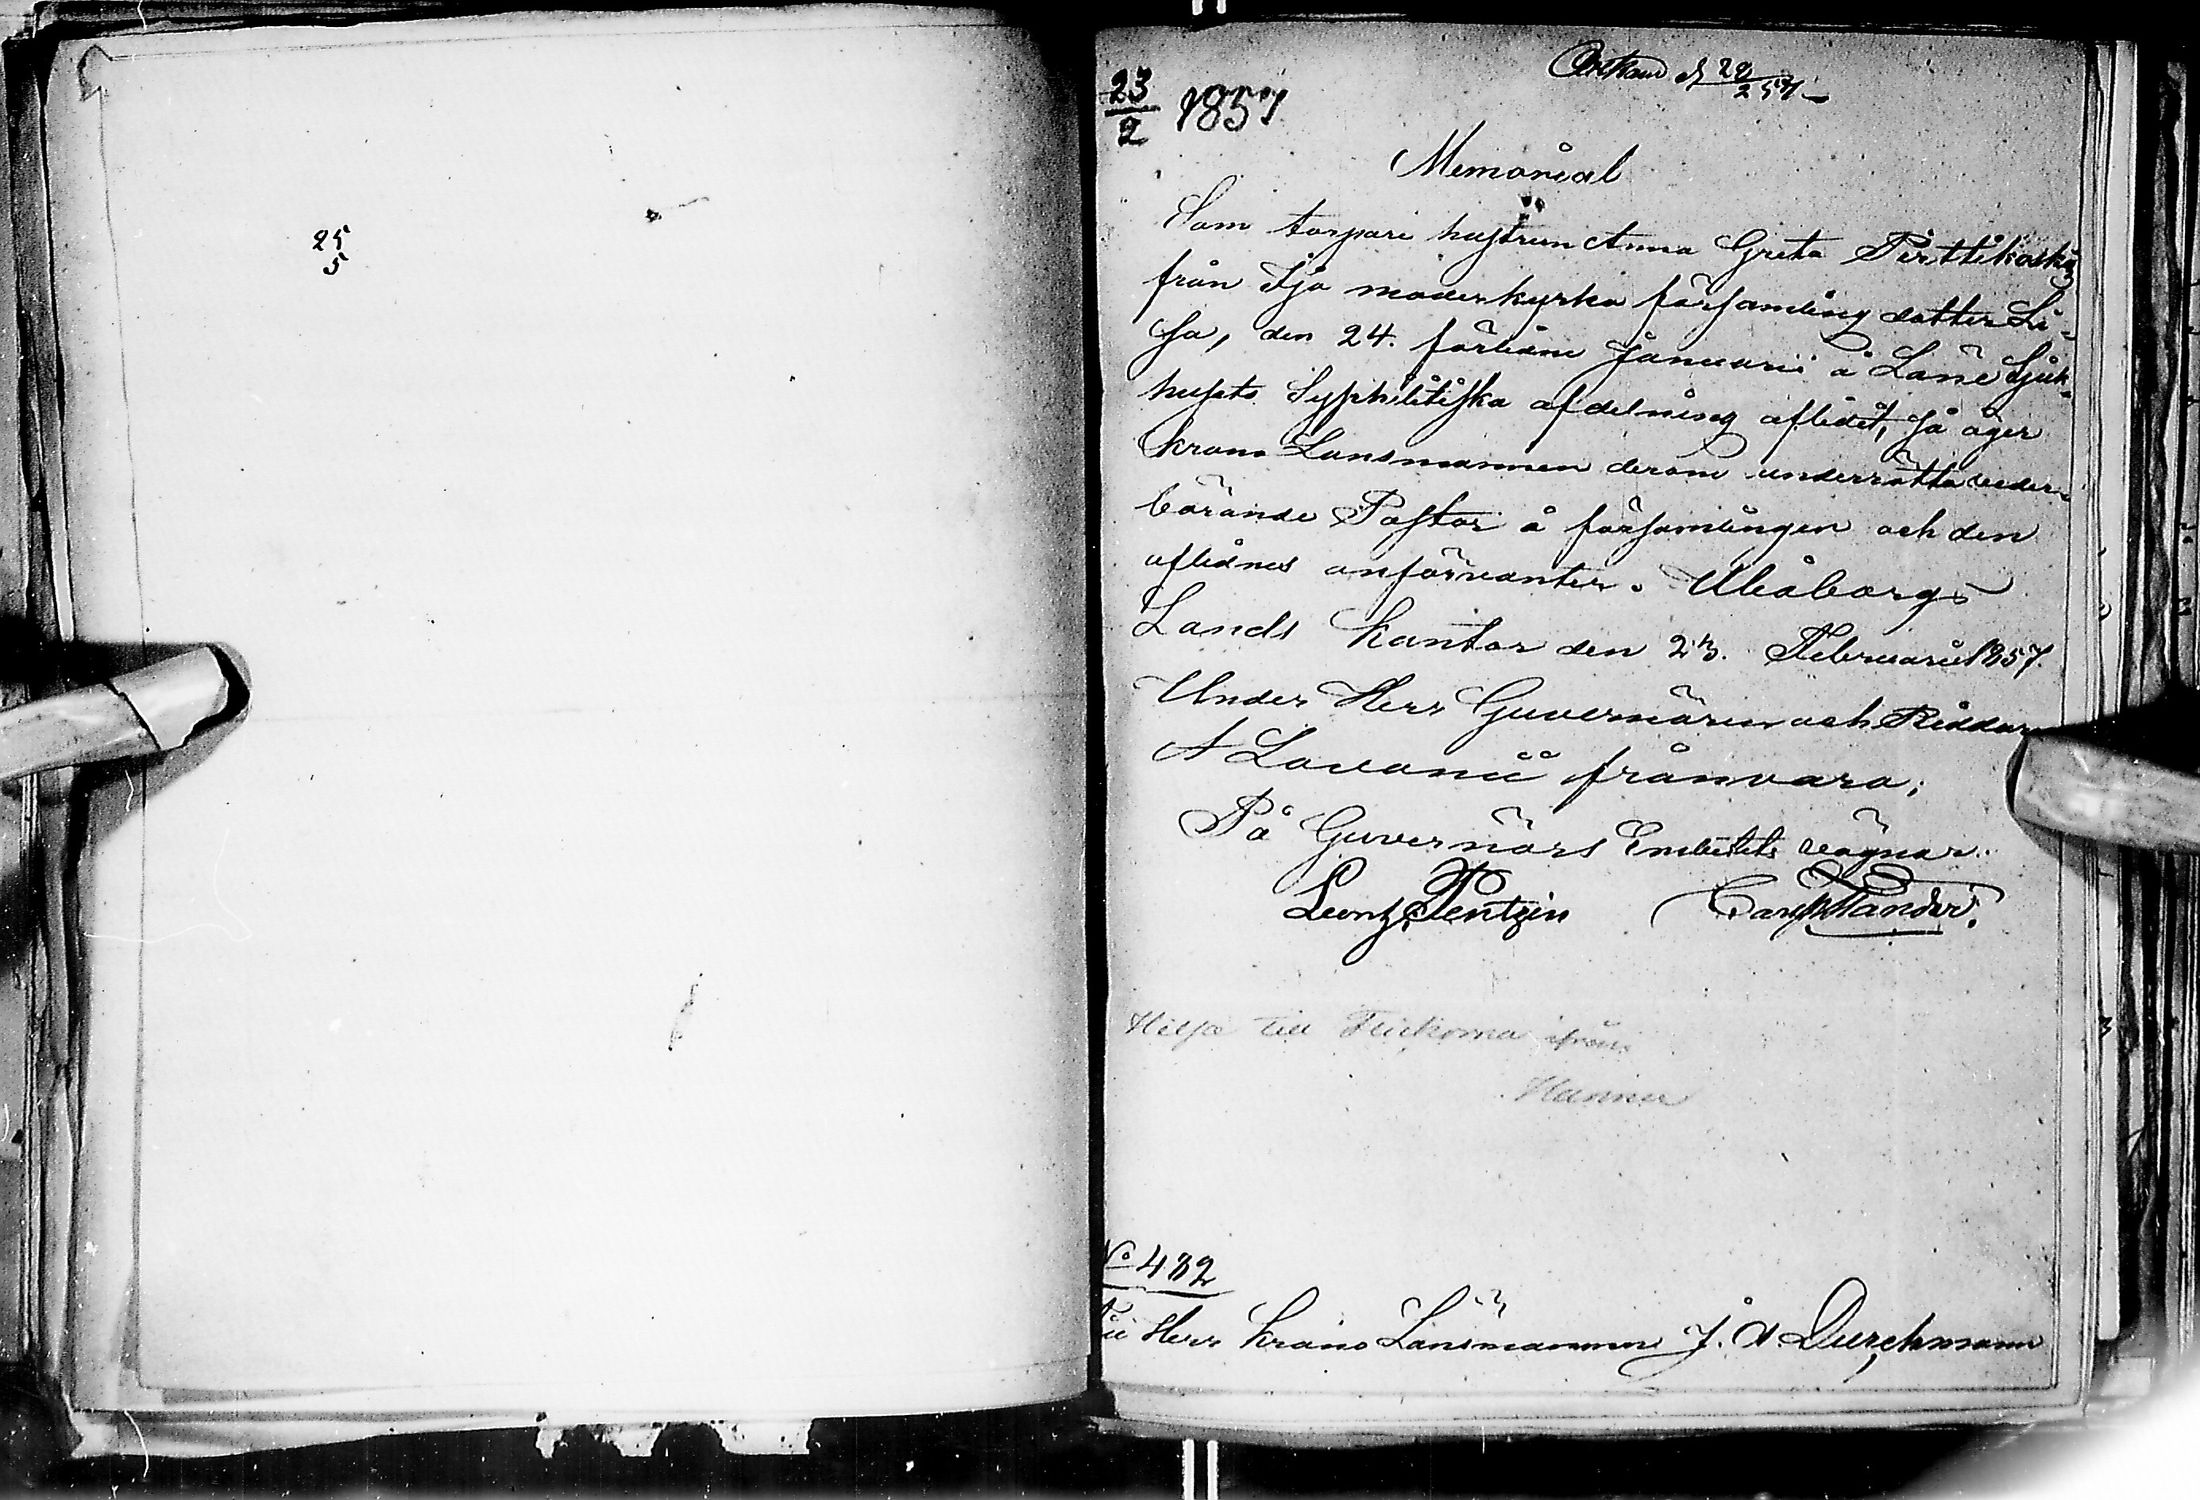 25
5
23/2 1857
d 28/2 57
Memorial
Som torpare hustrun Anna Greta Perttikoskis
från Ijo moderkyrko församling dotter Li-
sa, den 24. förlidne Januarii å Läne Sjuk-
husets Syphilitiska afdelning aflidit, så äger
Krono Länsmannen derom underrätta veder-
börande Pastor å församlingen och den
aflidnes anförvanter. Uleåborgs
Lands Kontor den 23. Februarii 1857.
Under Herr Guvernören och Riddaren
A Lavonii frånvaro;
På Guvernörs Embetets vägnar.
Hilja till från
Hanna
No 482
Till Herr Krono Länsmannen J. W. Durchman